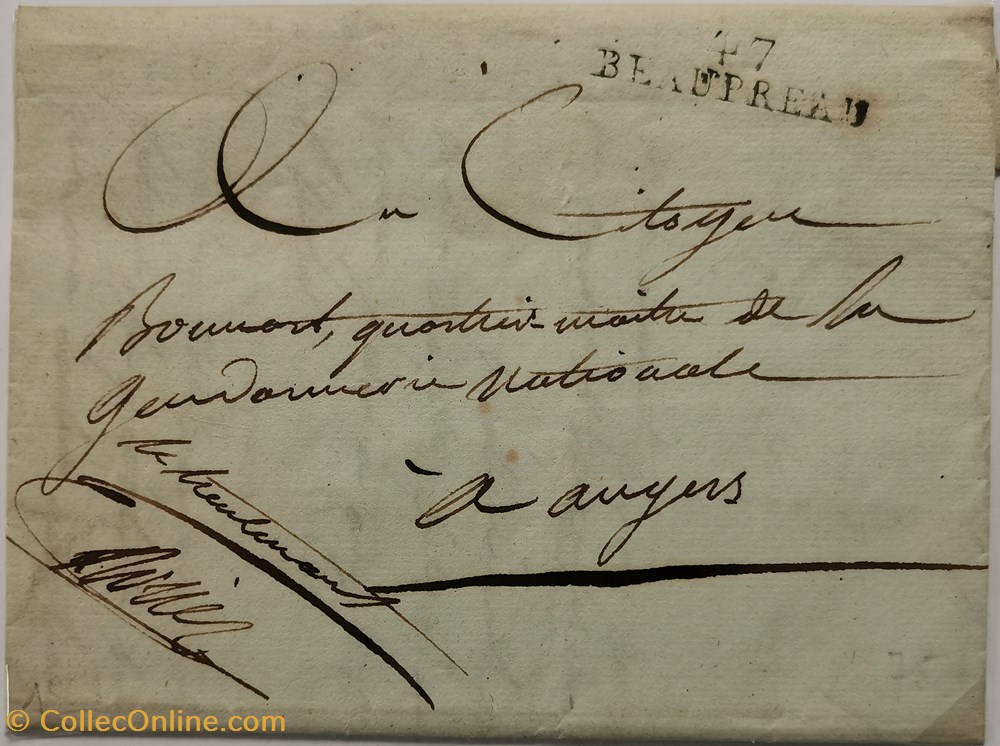 47
BEAUPREAU
Au Citoyen
Bonnart, quartier-maitre de la
Gendarmerie Nationale
à angers
le lieutenant
© CollecOnline.com